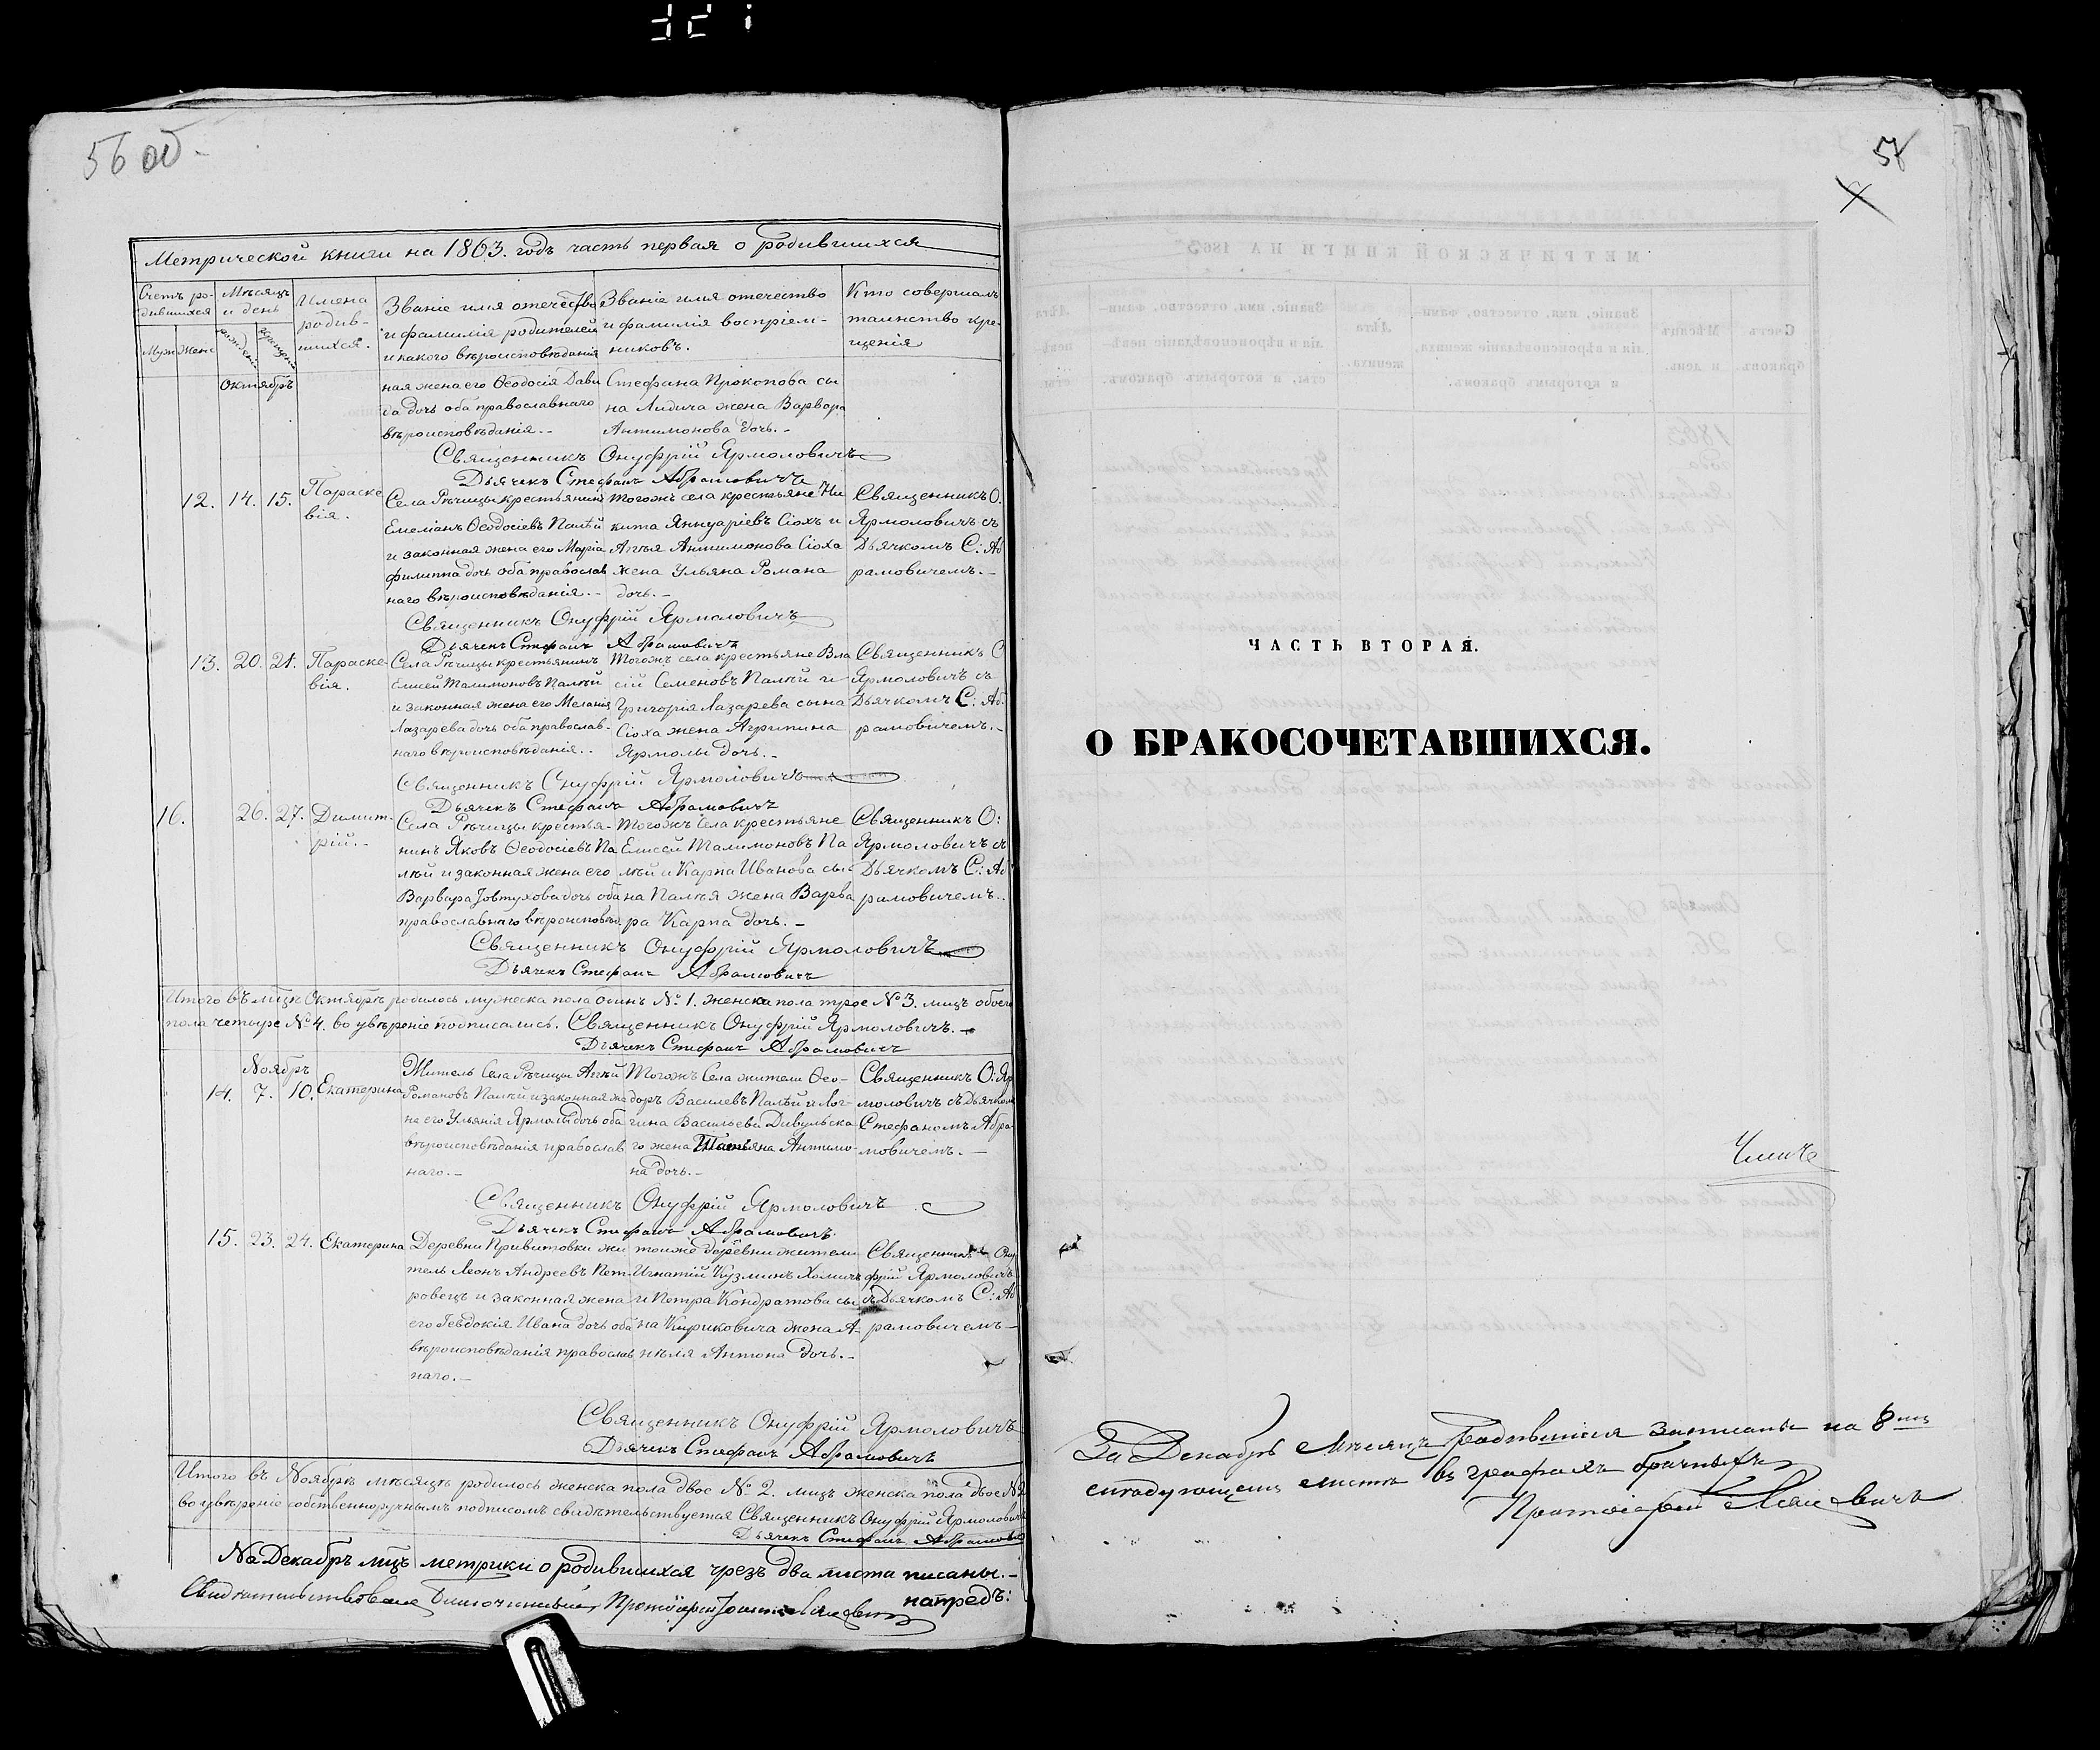 56 об
Метрической книги на 1863. годъ часть первая о родившихся
Счетъ родившихся
Муж. Жен.
Мѣсяцъ и день
рожденія крещенія
Имена родившихся.
Званіе имя отечество и фамилія родителей и какого вѣроисповѣданія
Званіе имя отечество и фамилія воспріемниковъ.
Кто совершалъ таинство крещенія
Октябрь
ная жена его Ѳеодосія Дави
да дочь оба православнаго
вѣроисповѣданія.-
Стефана Прокопова сы
на Лидича жена Варвара
Антимонова дочь.-
Священникъ Онуфрій Ярмоловичъ
Дьячекъ Стефанъ Абрамовичъ
12. 14. 15. Параске
вія.
Села Рѣчицы крестьянинъ
Емеліанъ Ѳеодосіевъ Палѣй
и законная жена его Марія
Филиппа дочь оба православ
наго вѣроисповѣданія.-
Тогожъ села крестьяне Ни
кита Яннуаріевъ Сіохъ и
Агѣя Антимонова Сіоха
жена Ульяна Романа
дочь.-
Священникъ О.
Ярмоловичъ съ
Дьячкомъ С: Аб
рамовичемъ.-
Священникъ Онуфрій Ярмоловичъ
Дьячекъ Стефанъ Абрамовичъ
13. 20. 21. Параске-
вія.
Села Рѣчицы крестьянинъ
Елисей Талимоновъ Палѣй
и законная жена его Меланія
Лазарева дочь оба православ-
наго вѣроисповѣданія..
Тогожъ села крестьяне Вла
сій Семеновъ Палѣй и
Григорія Лазарева сына
Сіоха жена Агрипина
Ярмолы дочь.-
Священникъ О
Ярмоловичъ съ
Дьячкомъ С: Аб.
рамовичемъ.-
Священникъ Онуфрій Ярмоловичъ
Дьячекъ Стефанъ Абрамовичъ
16. 26. 27. Димит-
рій.-
Села Рѣчицы крестья-
нинъ Яковъ Ѳеодосіевъ Па
лѣй и законная жена его
Варвара Іовтухова дочь оба
православнаго вѣроисповѣд.
Тогожъ села крестьяне
Елисей Талимоновъ Па
лѣй и Карпа Иванова сы-
на Палѣя жена Варва
ра Карпа дочь.-
Священникъ О:
Ярмоловичъ съ
Дьячкомъ С: Аб
рамовичемъ..
Священникъ Онуфрій Ярмоловичъ
Дьячекъ Стефанъ Абрамовичъ
Итого въ мцѣ Октябрѣ родилось мужеска пола одинъ № 1. женска пола трое № 3. лицъ обоего
пола четыре № 4. во увѣреніе подписались. Священникъ Онуфрій Ярмоловичъ.-
Дьячекъ Стефанъ Абрамовичъ
Ноябрь
14. 7. 10. Екатерина
Житель Села Рѣчицы Агѣй
Романовъ Палѣй и законная же
на его Ульянія Ярмолы дочь оба
вѣроисповѣданія православ
наго.-
Тогожъ Села жители Ѳео-
доръ Василевъ Палѣй и Лог-
гина Васильева Дивульска
го жена Татьяна Антимо-
на дочь.-
Священникъ О: Яр
моловичъ съ Дьячком
Стефаномъ Абра-
мовичемъ.-
Священникъ Онуфрій Ярмоловичъ
Дьячекъ Стефанъ Абрамовичъ.
15. 23. 24. Екатерина
Деревни Привитовки жи
тель Леонъ Андреевъ Пет-
ровецъ и законная жена
его Гевдокія Ивана дочь оба
вѣроисповѣданія православ
наго.-
тоиже деревни жители
Игнатій Кузминъ Хомичъ
и Петра Кондратова сы
на Кириковича жена А-
нѣля Антона дочь.-
Священникъ Ону
фрій Ярмоловичъ
съ Дьячкомъ С: Аб
рамовичемъ-
Священникъ Онуфрій Ярмоловичъ
Дьячекъ Стефанъ Абрамовичъ
Итого въ Ноябрѣ мѣсяцѣ родилось женска пола двое № 2. лицъ женска пола двое № 2
во увѣреніе собственноручнымъ подписомъ свидѣтельствуется Священникъ Онуфрій Ярмолович
Дьячекъ Стефанъ Абрамович
На Декабрь мцъ метрики о родившихся чрезъ два листа писаны.-
напредъ:
Свидѣтельствовалъ Благочинный Протоіерей Іоаннъ
58
ЧАСТЬ ВТОРАЯ.
О БРАКОСОЧЕТАВШИХСЯ.
За Декабрь Мѣсяцъ родившіяся записаны на 8мъ
слѣдующемъ листѣ въ графахъ брачныхъ
Протоіерей